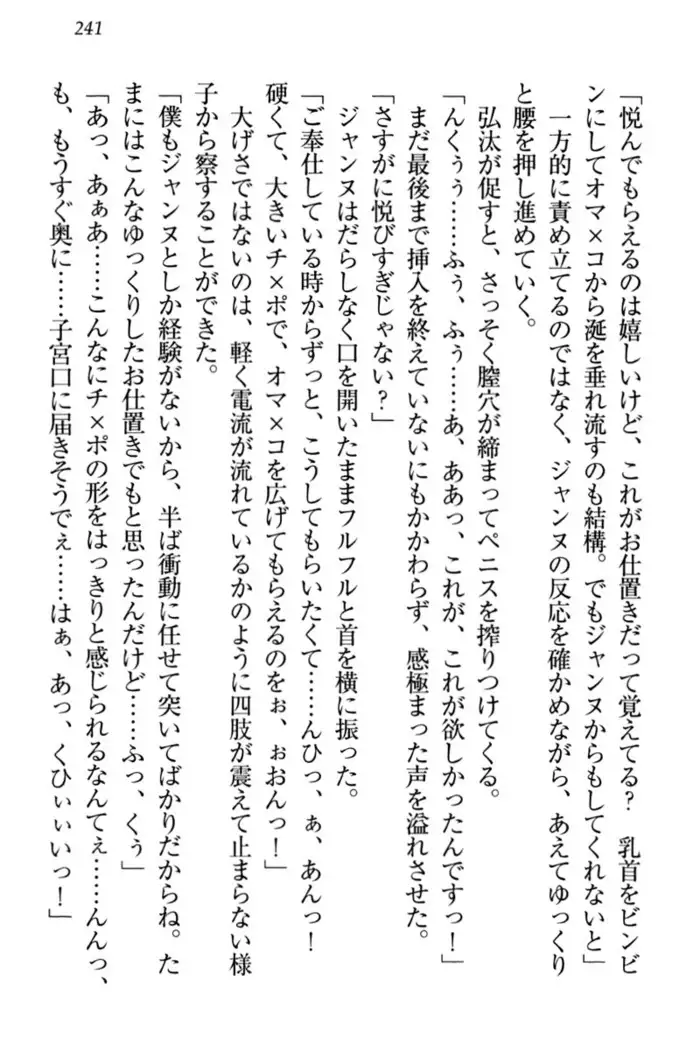 241
「悦んでもらえるのは嬉しいけど、これがお仕置きだって覚えてる？　乳首をビンビ
ンにしてオマ×コから涎を垂れ流すのも結構。でもジャンヌからもしてくれないと」
一方的に責め立てるのではなく、ジャンヌの反応を確かめながら、あえてゆっくり
と腰を押し進めていく。
弘汰が促すと、さっそく膣穴が締まってペニスを搾りつけてくる。
「んくぅぅ……ふぅ、ふぅ……あ、ああっ、これが、これが欲しかったんですっ！」
まだ最後まで挿入を終えていないにもかかわらず、感極まった声を溢れさせた。
「さすがに悦びすぎじゃない？」
ジャンヌはだらしなく口を開いたままフルフルと首を横に振った。
「ご奉仕している時からずっと、こうしてもらいたくて……んひっ、ぁ、あんっ！
硬くて、大きいチ×ポで、オマ×コを広げてもらえるのをぉ、ぉおんっ！」
大げさではないのは、軽く電流が流れているかのように四肢が震えて止まらない様
子から察することができた。
「僕もジャンヌとしか経験がないから、半ば衝動に任せて突いてばかりだからね。た
まにはこんなゆっくりしたお仕置きでもと思ったんだけど……ふっ、くぅ」
「あっ、あぁあ……こんなにチ×ポの形をはっきりと感じられるなんてぇ……んんっ、
も、もうすぐ奥に……子宮口に届きそうでぇ……はぁ、あっ、くひぃぃいっ！」